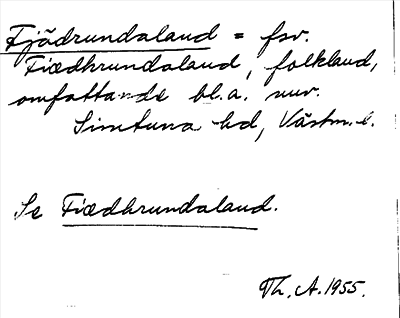 Fjädrundaland = fsv.
Fiædhrundaland, folkland,
omfattande bl.a. nuv.
Simtuna hd, Västm. l.
Se Fiædhrundaland.
Th. A. 1955.